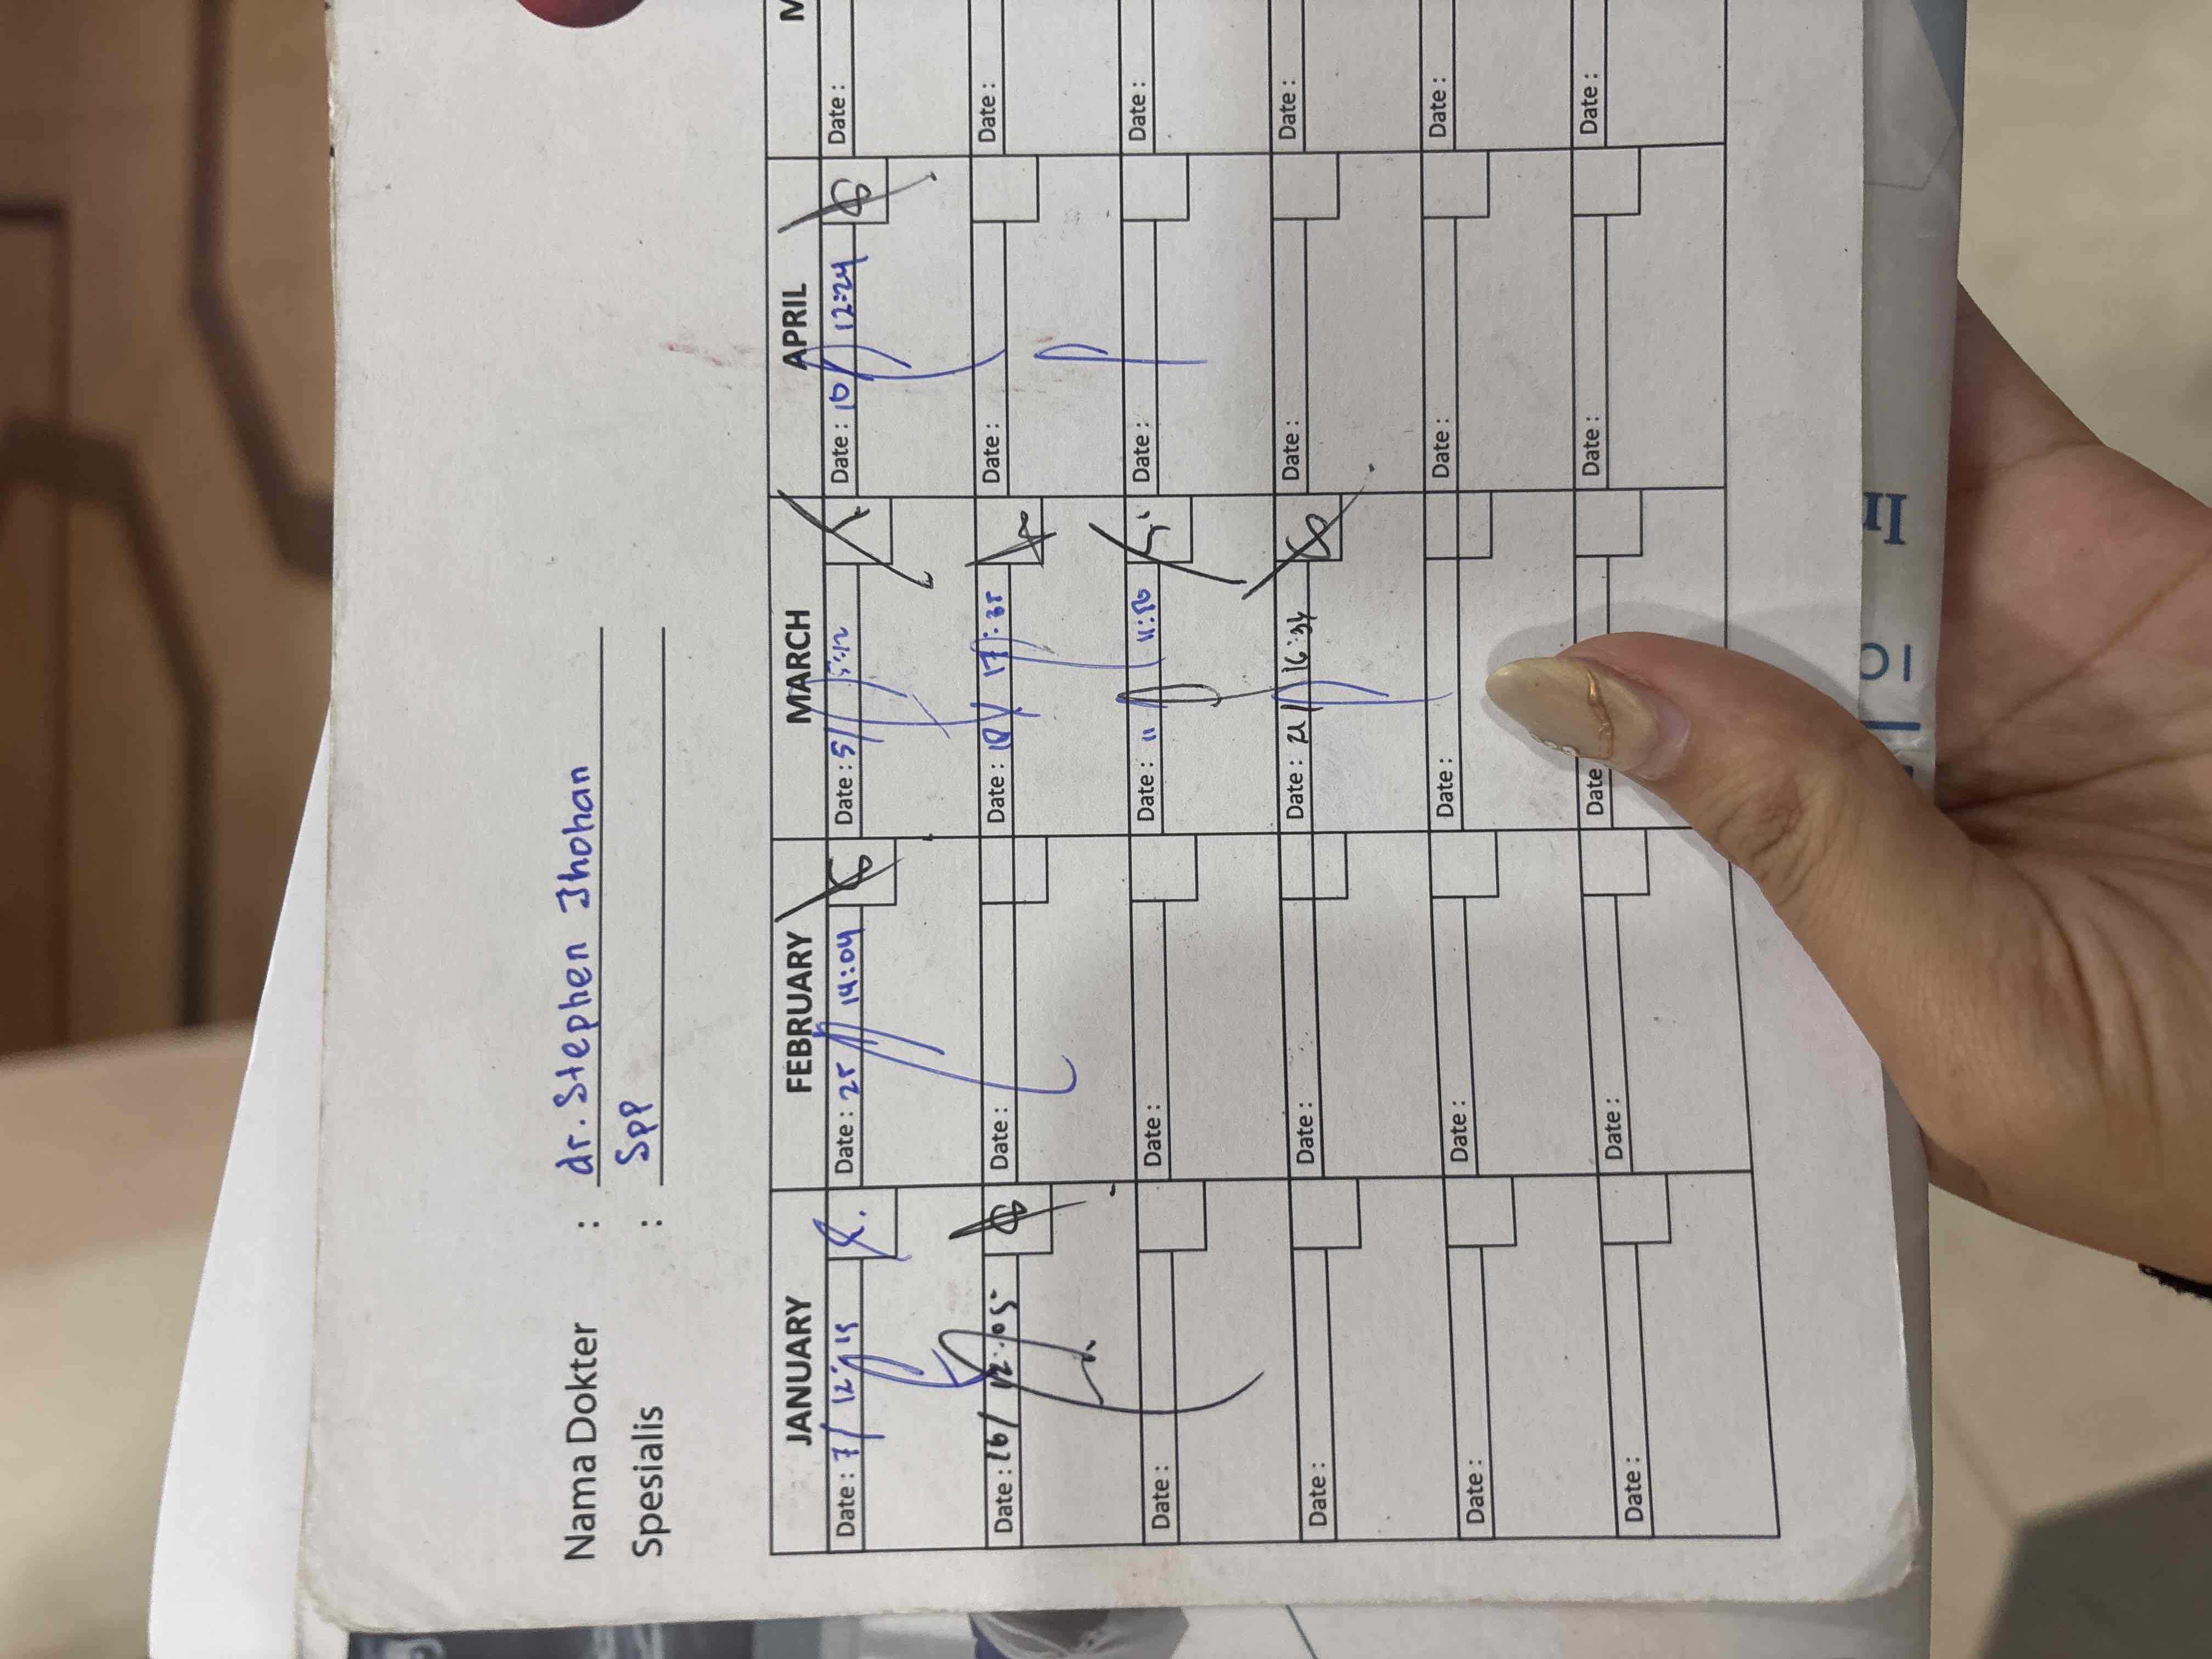 Nama Dokter : dr. Stephen Jhohan
Spesialis : SpP
JANUARY FEBRUARY MARCH APRIL M
Date : 7/ 12:15 Date : 25 14:04 Date : 5/ Date : 10/ 12:24 Date :
Date : 16/ 12:05 Date : Date : 17:35 Date : Date :
Date : Date : Date : 11 11:50 Date : Date :
Date : Date : Date : 21/ 16:34 Date : Date :
Date : Date : Date : Date : Date :
Date : Date : Date Date : Date :